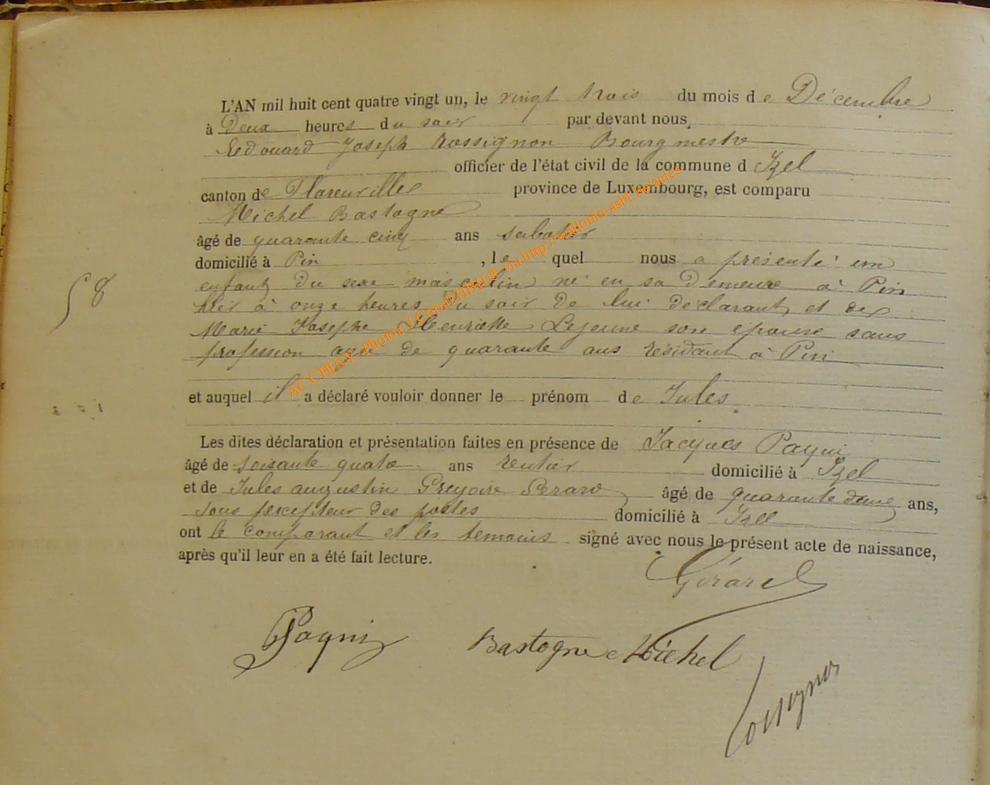 L'AN mil huit cent quatre vingt un, le vingt trois du mois de Décembre
à Deux heures du soir par devant nous
Edouard Joseph Rossignon Bourgmestre
officier de l'état civil de la commune d Izel
canton de Florenville province de Luxembourg, est comparu
Michel Bastogne
âgé de quarante cinq ans sabotier
domicilié à Pin , le quel nous a présenté un
58
enfant du sexe masculin né en sa demeure à Pin
hier à onze heures du soir de lui déclarant et de
Marie Josephe Henriette Lejeune son epouse sans
profession agée de quarante ans résidant à Pin
et auquel il a déclaré vouloir donner le prénom de Jules
Les dites déclaration et présentation faites en présence de Jacques Pagni
âgé de soixante quatre ans rentier domicilié à Izel
et de Jules augustin Gregoire Gerard âgé de quarante deux ans,
sous percepteur des postes domicilié à Izel
ont le comparant et les temoins signé avec nous le présent acte de naissance,
après qu'il leur en a été fait lecture.
Gérard
Pagni Bastogne Michel
Rossignon